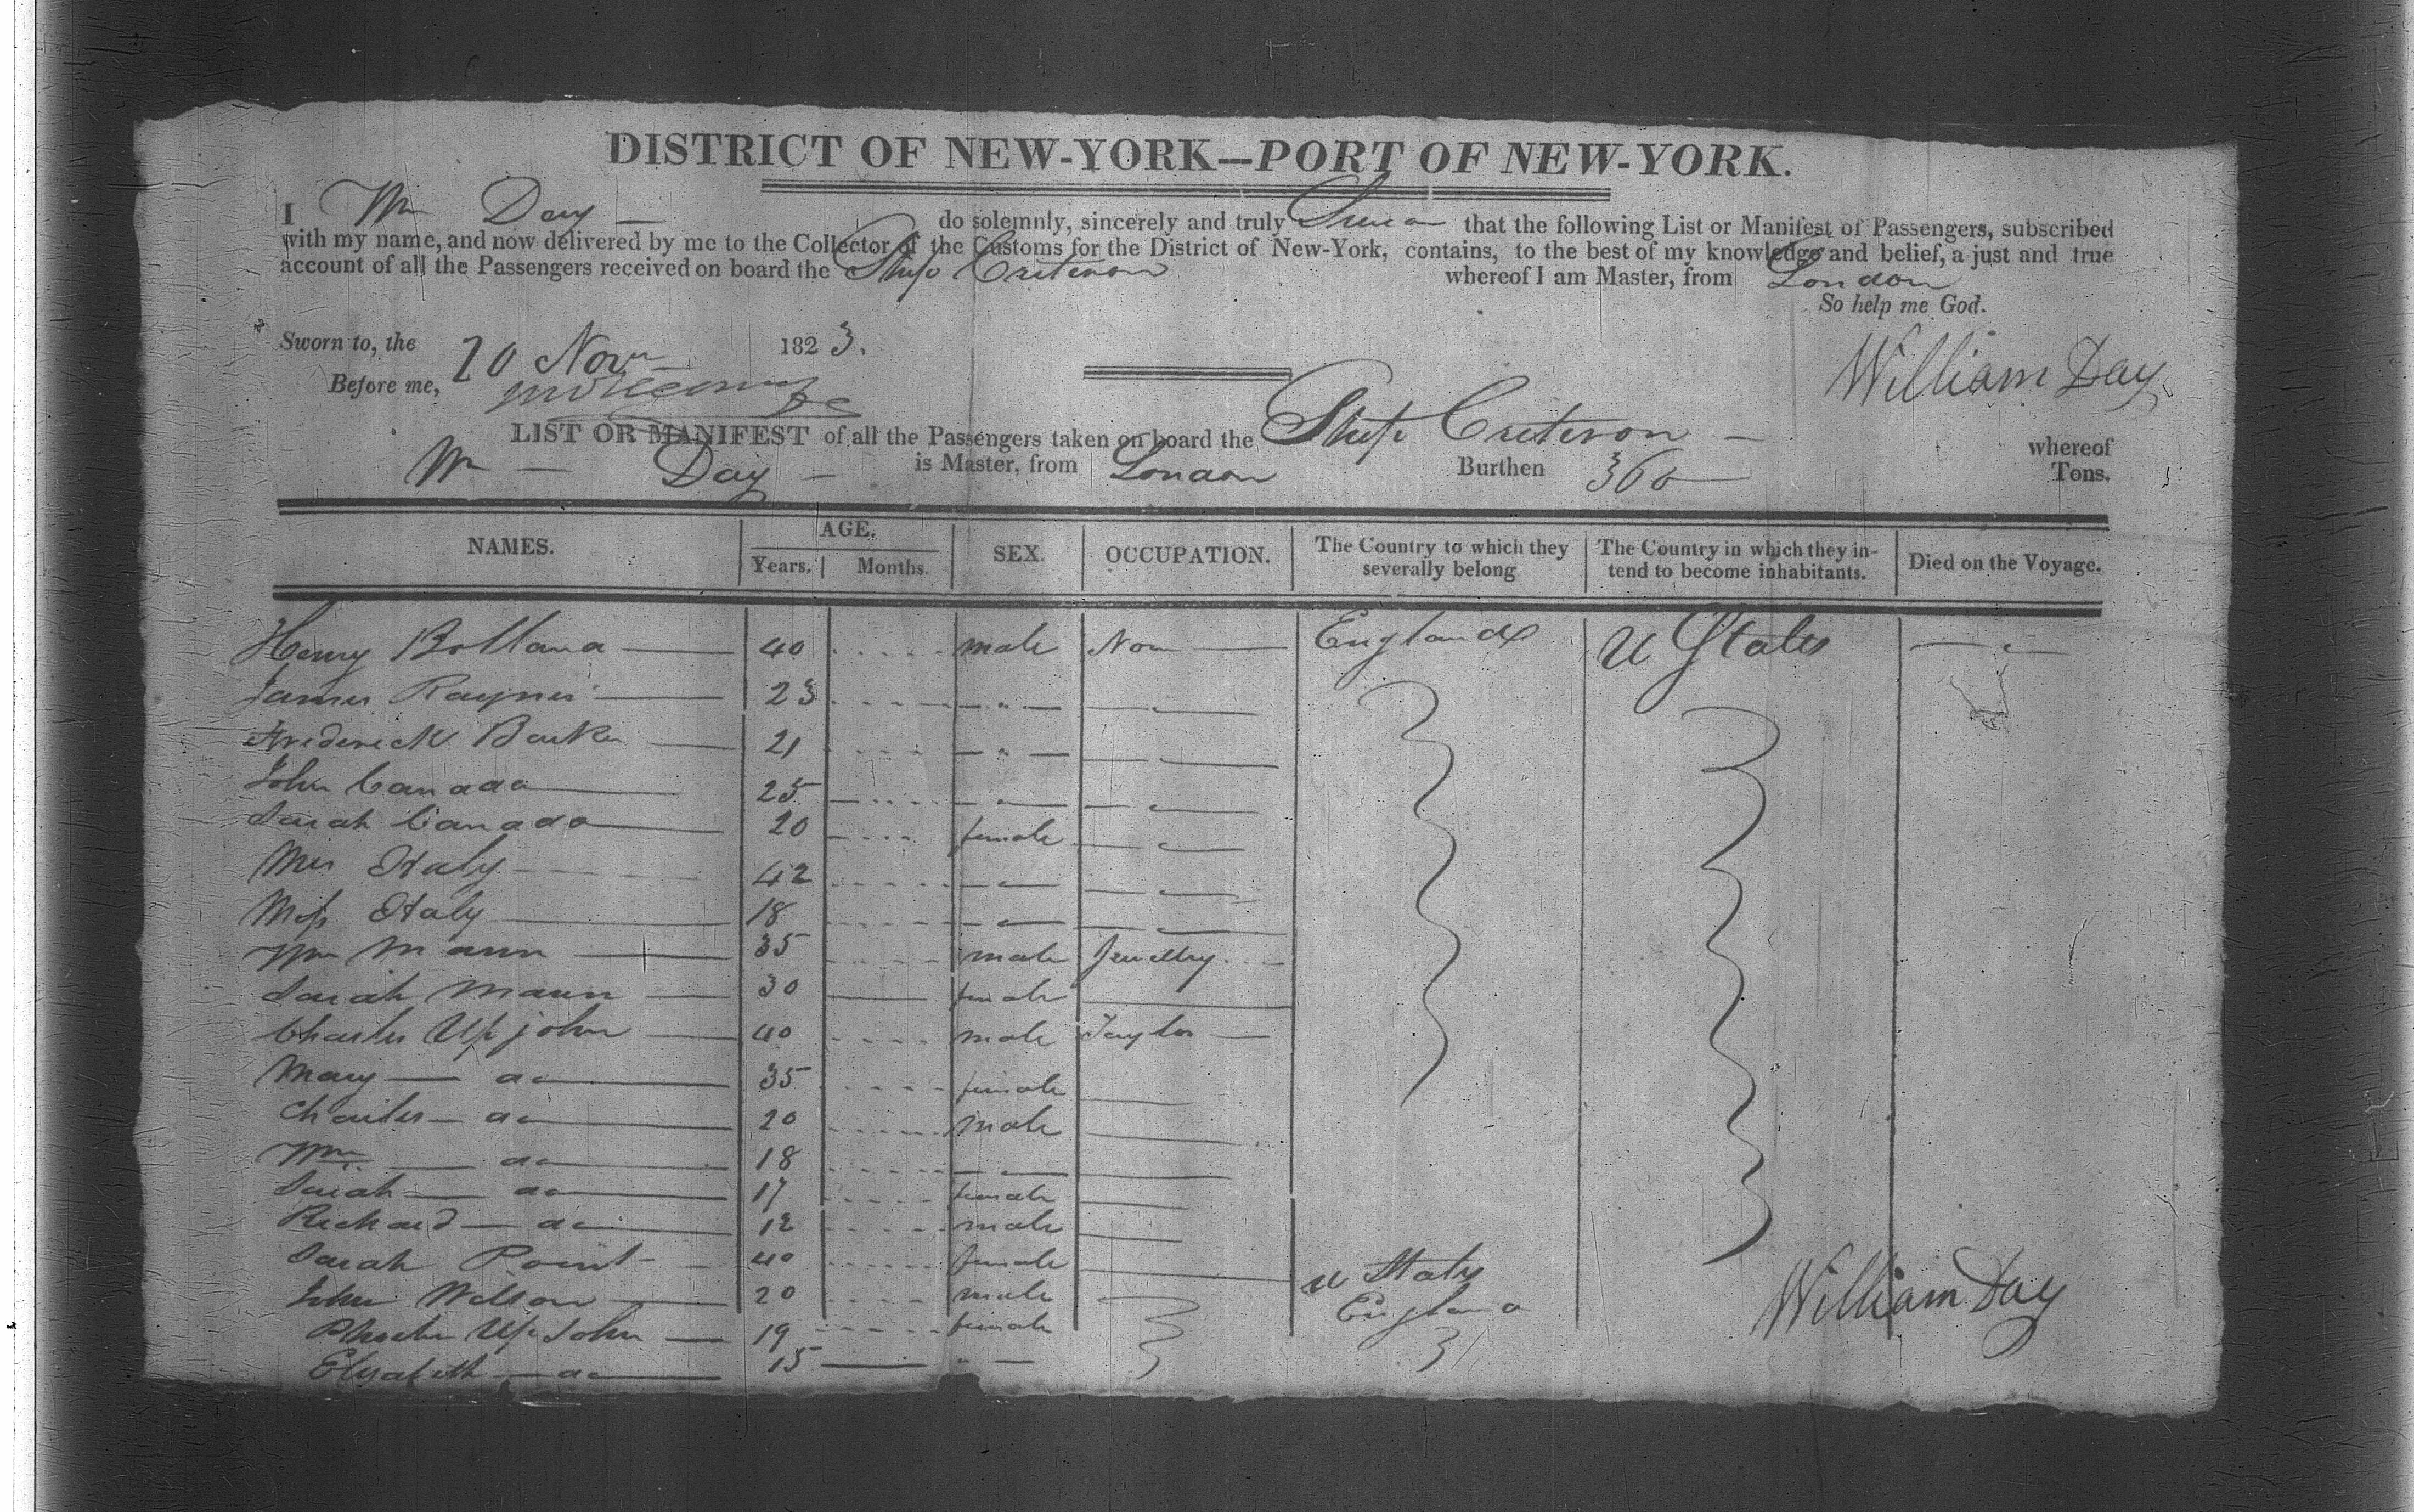 DISTRICT OF NEW-YORK—PORT OF NEW-YORK.
I Wm Day — do solemnly, sincerely and truly Swear that the following List or Manifest of Passengers, subscribed
with my name, and now delivered by me to the Collector of the Customs for the District of New-York, contains, to the best of my knowledge and belief, a just and true
account of all the Passengers received on board the Ship Criterion whereof I am Master, from London
So help me God.
Sworn to, the 20 Novr 1823.
Before me,
William Day
LIST OR MANIFEST of all the Passengers taken on board the Ship Criterion — whereof
Wm — Day — is Master, from London Burthen 360 Tons.
NAMES. AGE. Years. Months. SEX. OCCUPATION. The Country to which they severally belong The Country in which they intend to become inhabitants. Died on the Voyage.
Henry 40 male Non England U States
James Rayner 23
Frederick 21
John Canada 25
Sarah Canada 20 female
Mrs Italy 42
Miss Italy 18
Wm Mann 35 male Jewellry
Sarah Mann 30 female
Charles Upjohn 40 male Taylor
Mary — do 35 female
Charles — do 20 male
Wm — do 18
Sarah — do 17 female
Richard — do 12 male
Sarah Point 40 female U States
John Wilson 20 male England
Phoebe UpJohn 19 female
Elizabeth — do 15
William Day